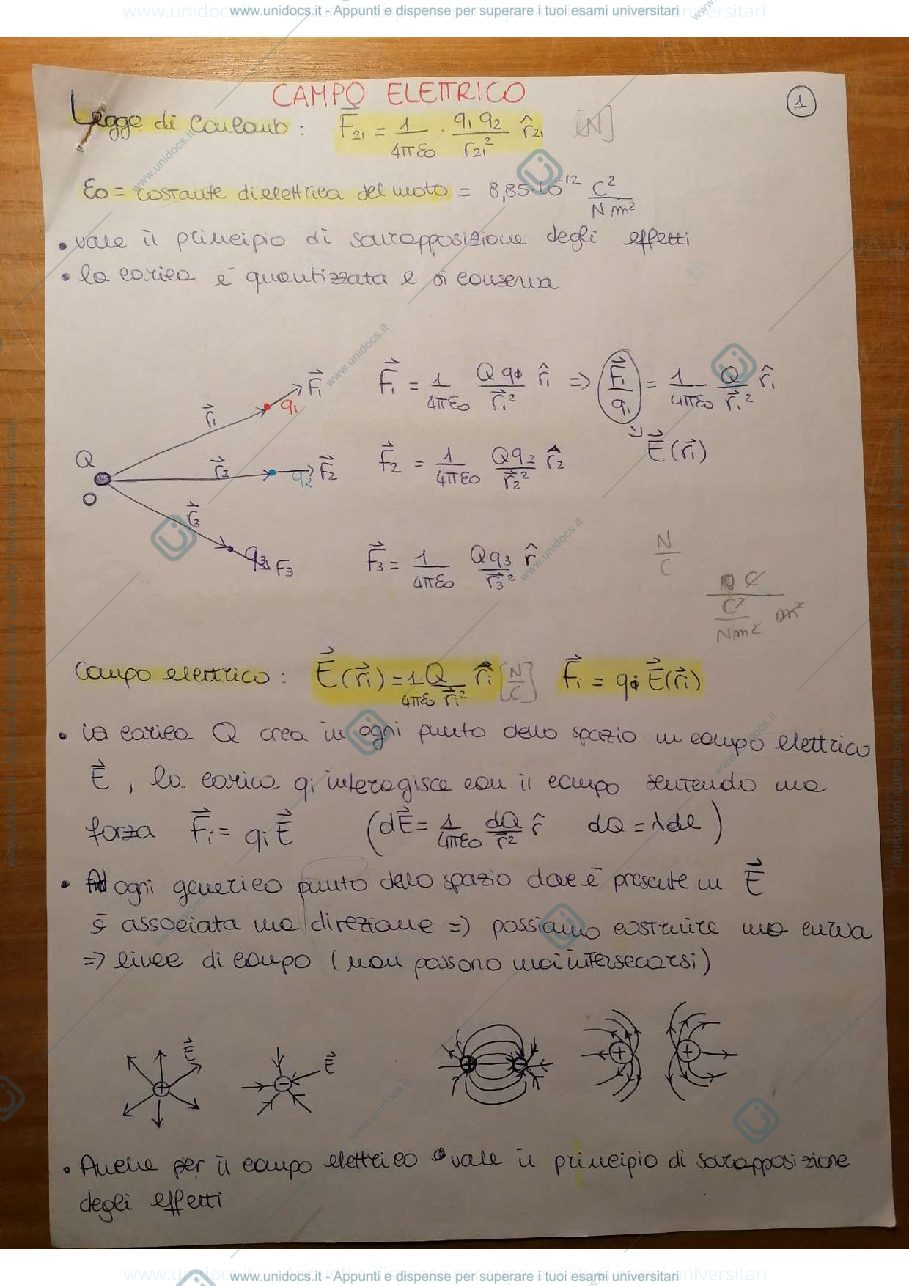 www.unidocs.it - Appunti e dispense per superare i tuoi esami universitari
CAMPO ELETTRICO
1
Legge di Coulomb : F⃗₂₁ = 1/(4πε₀) · q₁ q₂/r₂₁² r̂₂₁ [N]
ε₀ = costante dielettrica del moto = 8,85·10⁻¹² C²/(N m²)
• vale il principio di sovrapposizione degli effetti
• la carica è quantizzata e si conserva
F⃗₁ = 1/(4πε₀) Q q₁/r⃗₁² r̂₁ => F⃗₁/q₁ = 1/(4πε₀) Q/r⃗₁² r̂₁
r⃗₁ q₁ F⃗₁
=> E⃗(r⃗₁)
Q r⃗₂ q₂ F⃗₂
F⃗₂ = 1/(4πε₀) Q q₂/r⃗₂² r̂₂
O
r⃗₃ q₃ F₃
F⃗₃ = 1/(4πε₀) Q q₃/r⃗₃² r̂
N/C
C
C²/(Nm²) m²
Campo elettrico : E⃗(r⃗₁) = 1/(4πε₀) Q/r⃗₁² r̂₁ [N/C] F⃗₁ = q₁ E⃗(r⃗₁)
• la carica Q crea in ogni punto dello spazio un campo elettrico
E⃗ , la carica qᵢ interagisce con il campo sentendo una
forza F⃗ᵢ = qᵢ E⃗ (dE⃗ = 1/(4πε₀) dQ/r⃗² r̂ dQ = λdl )
• Ad ogni generico punto dello spazio dove è presente un E⃗
è associata una direzione => possiamo costruire una curva
=> linee di campo ( non possono mai intersecarsi )
E⃗ + - E⃗ + - + +
• Anche per il campo elettrico vale il principio di sovrapposizione
degli effetti
www.unidocs.it - Appunti e dispense per superare i tuoi esami universitari